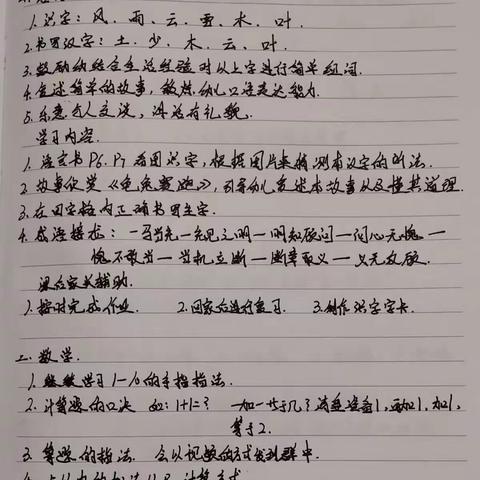 1. 识字：风、雨、云、雪、木、叶.
2. 书写汉字：土、少、木、云、叶.
3. 鼓励幼儿结合生活经验对以上字进行简单组词.
4. 复述简单的故事，锻炼幼儿口语表达能力.
5. 乐意与人交谈，讲话有礼貌.
学习内容.
1. 语文书P6、P7 看图识字，根据图片来猜测本汉字的读法.
2. 故事欣赏《龟兔赛跑》，引导幼儿复述本故事以及懂其道理.
3. 在田字格内正确书写生字.
4. 成语接龙：一马当先一先见之明一明知故问一问心无愧一
愧不敢当一当机立断一断章取义一义无反顾.
课后家长辅助.
1. 按时完成作业. 2. 回家后进行复习. 3. 制作识字字卡.
二. 数学.
1. 继续学习1—10的手指指法.
2. 计算题的口决 如：1+1=？ 一加一等于几？请准备1，再加1，加1，
等于2.
3. 算题的指法 会以视频的方式发到群中.